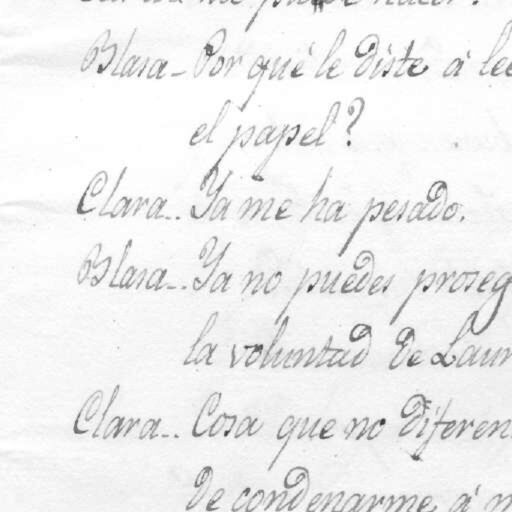 Blasa - Por qué le diste á le
el papel?
Clara.. Ya me ha pesado.
Blasa-. Ya no puedes proseg
la voluntad de Laur
Clara.. Cosa que no diferen
de condenarme á m